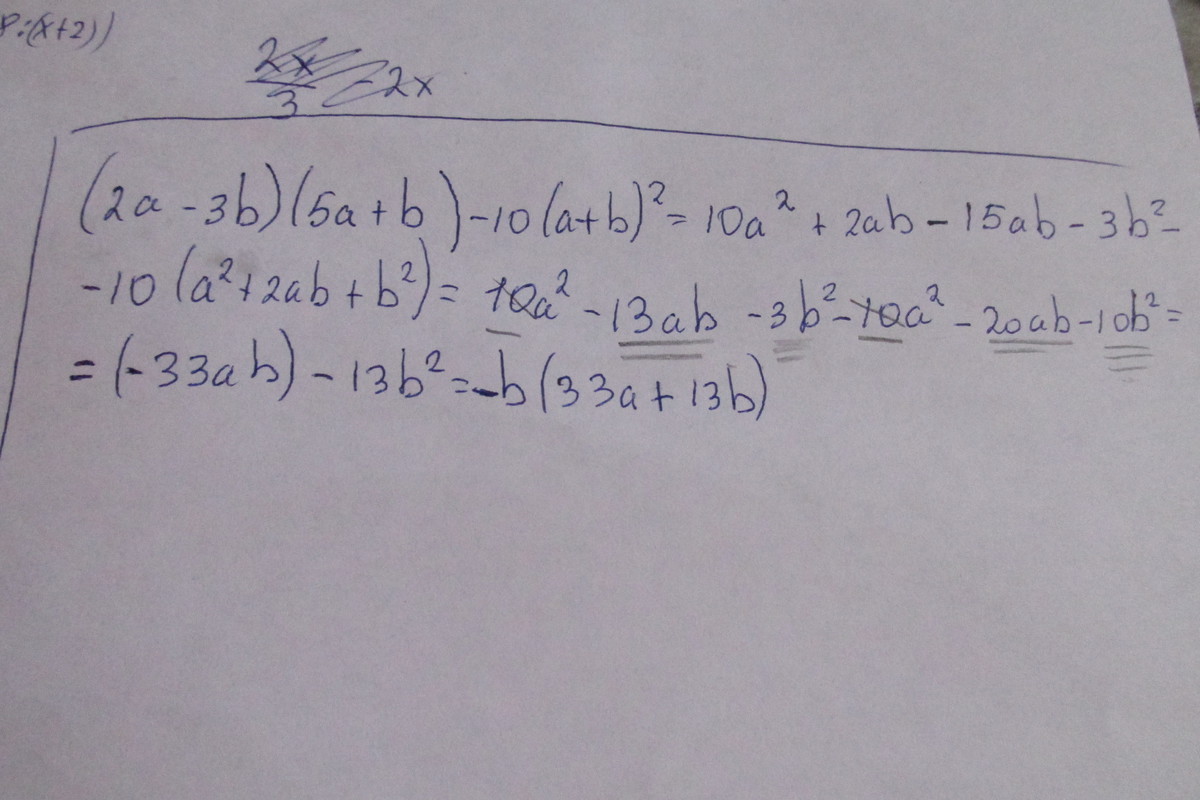 :(x+2))
2x
3
-2x
(2a-3b)(5a+b)-10(a+b)²=10a²+2ab-15ab-3b²-
-10(a²+2ab+b²)=10a²-13ab-3b²-10a²-20ab-10b²=
=(-33ab)-13b²=-b(33a+13b)